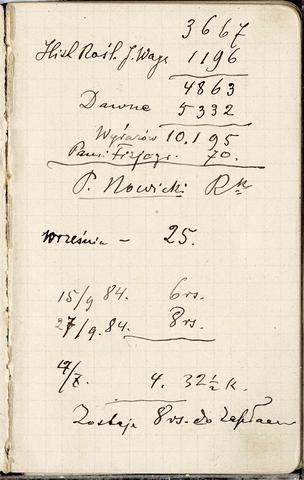 3667
Hist. Rośl. J. Waga 1196
4863
Dawne 5332
Wyrazów 10.195
Pam. Fizjogr. 70.
P. Nowicki Rs
Września – 25.
15/9 84. 6 rs.
27/9. 84. 8 rs.
17/X. 4. 32½ K.
Zostaje 8 rs. do zapłaceni